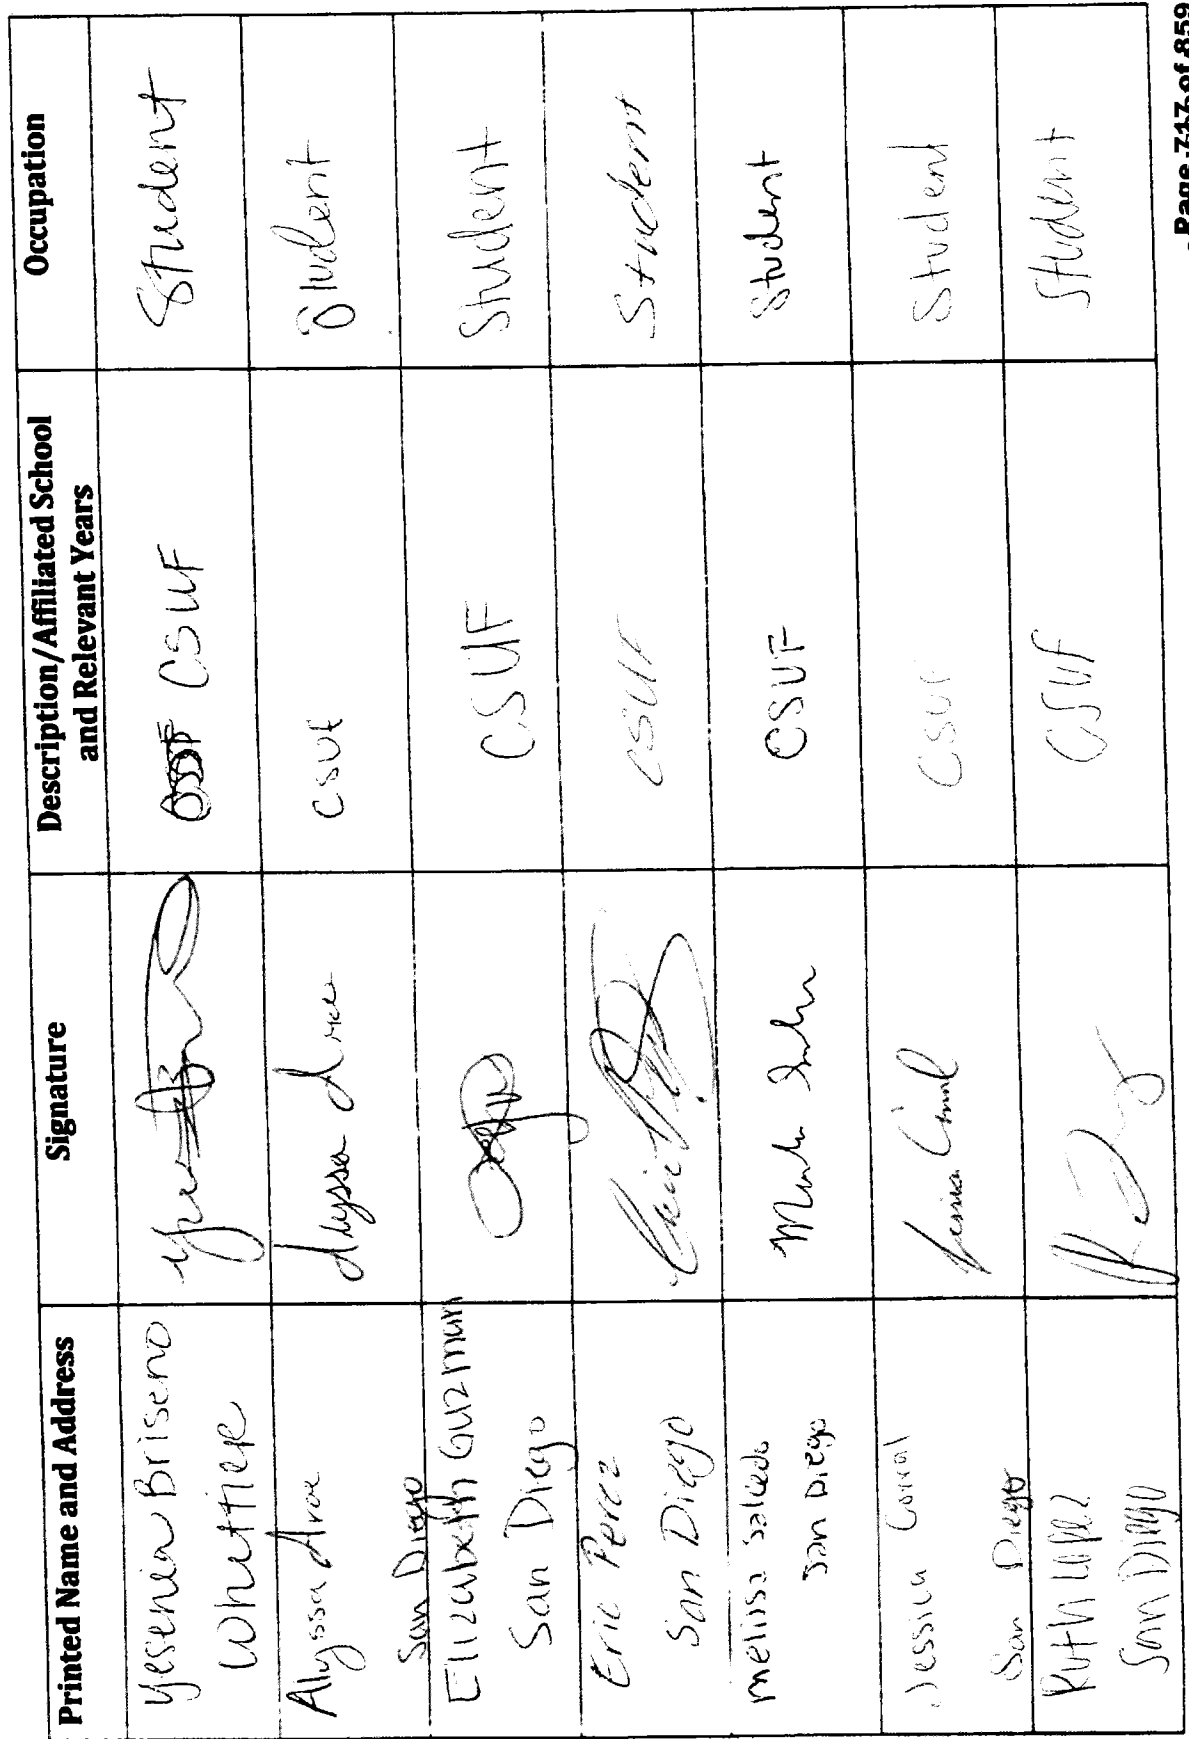 Printed Name and Address Signature Description/Affiliated School and Relevant Years Occupation
Yesenia Briseno
Whittier
CSUF Student
Alyssa
San Diego
Alyssa
CSUF Student
Elizabeth Guzman
San Diego
CSUF Student
Eric Perez
San Diego
CSUF Student
Melissa Salcedo
San Diego
CSUF Student
Jessica Corral
San Diego
Jessica Corral
CSUF Student
Ruth Lopez
San Diego
CSUF Student
Page 717 of 859